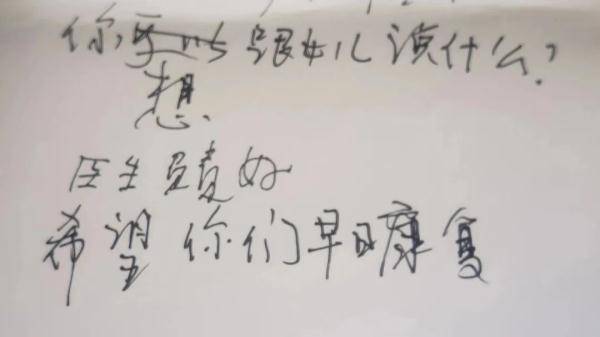 你想跟女儿说什么?
医生真好
希望你们早日康复